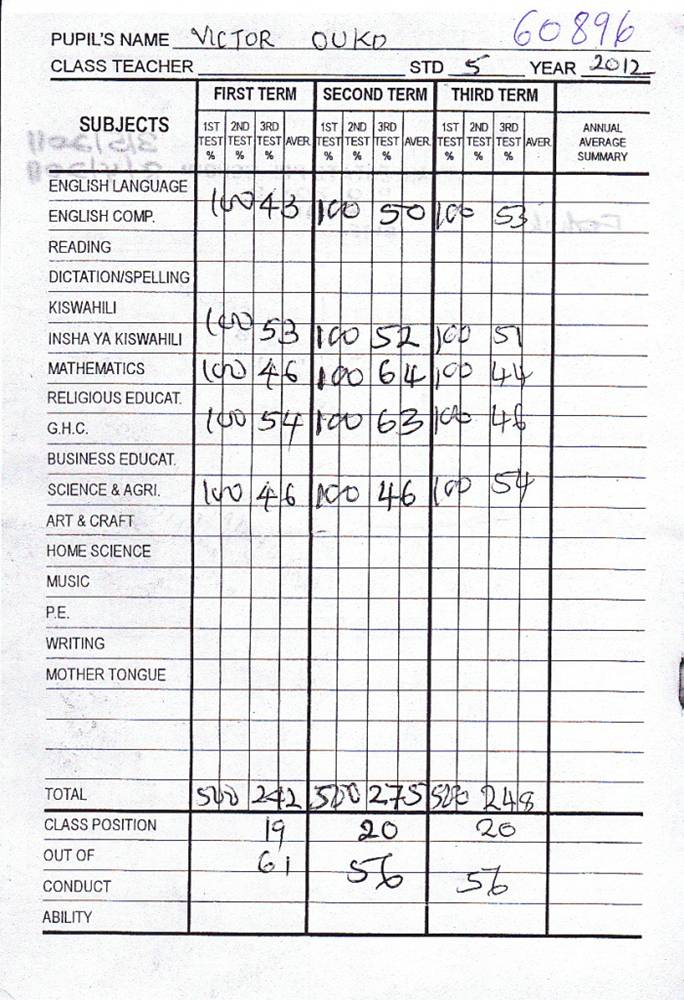 60896
PUPIL'S NAME VICTOR OUKO
CLASS TEACHER STD 5 YEAR 2012
SUBJECTS FIRST TERM SECOND TERM THIRD TERM ANNUAL AVERAGE SUMMARY
1ST TEST % 2ND TEST % 3RD TEST % AVER. 1ST TEST % 2ND TEST % 3RD TEST % AVER. 1ST TEST % 2ND TEST % 3RD TEST % AVER.
ENGLISH LANGUAGE
ENGLISH COMP. 100 43 100 50 100 53
READING
DICTATION/SPELLING
KISWAHILI
INSHA YA KISWAHILI 100 53 100 52 100 51
MATHEMATICS 100 46 100 64 100 44
RELIGIOUS EDUCAT.
G.H.C. 100 54 100 63 100 46
BUSINESS EDUCAT.
SCIENCE & AGRI. 100 46 100 46 100 54
ART & CRAFT
HOME SCIENCE
MUSIC
P.E.
WRITING
MOTHER TONGUE
TOTAL 500 242 500 275 500 248
CLASS POSITION 19 20 20
OUT OF 61 56
CONDUCT 56
ABILITY